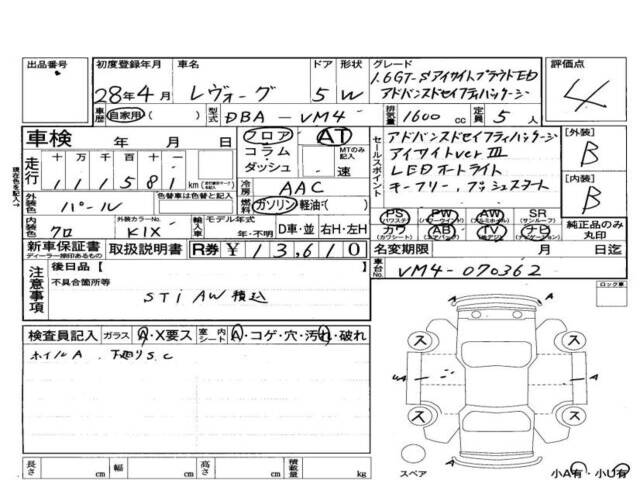 出品番号 初度登録年月 車名 ドア 形状 グレード 評価点
28年4月 レヴォーグ 5 W 1.6GT-SアイサイトプラウドEd
アドバンスドセイフティパッケージ 4
車歴 自家用( ) 型式 DBA-VM4 排気量 1600cc 定員 5人
車検 年 月 日 フロア AT
コラム MTのみ記入
ダッシュ 速
セールスポイント アドバンスドセイフティパッケージ
アイサイトver Ⅲ
LEDオートライト
キーフリー、プッシュスタート
[外装] B
[内装] B
現在色を記入→
走行 十万 千百十一
1 1 1 5 8 1 km
冷房 AAC
外装色 パール 色替車は色替と記入 燃料 ガソリン・軽油・( )
内装色 クロ 外装カラーNo. K1X 輸入車 モデル年式 年・不明 D車・並 右H・左H
PS PW AW SR
(パワステ) (パワーウインド) (アルミホイル) (サンルーフ)
カワ AB TV ナビ
(カワシート) (エアバッグ) (純正テレビ) (ナビゲーション)
純正品のみ丸印
新車保証書 取扱説明書 R券 ¥13,610
ディーラー捺印あるもの
名変期限 月 日迄
車台No. VM4-070362
注意事項 後日品【
不具合箇所等
STi AW積込
ロック車
検査員記入 ガラス A・X要ス 室内シート A・コゲ・穴・汚れ・破れ
ホイルA 下廻りS.C
A
ス ス
A
ス ス
A
スペア 小A有・小U有
長さ cm 幅 cm 高さ cm 積載量 kg